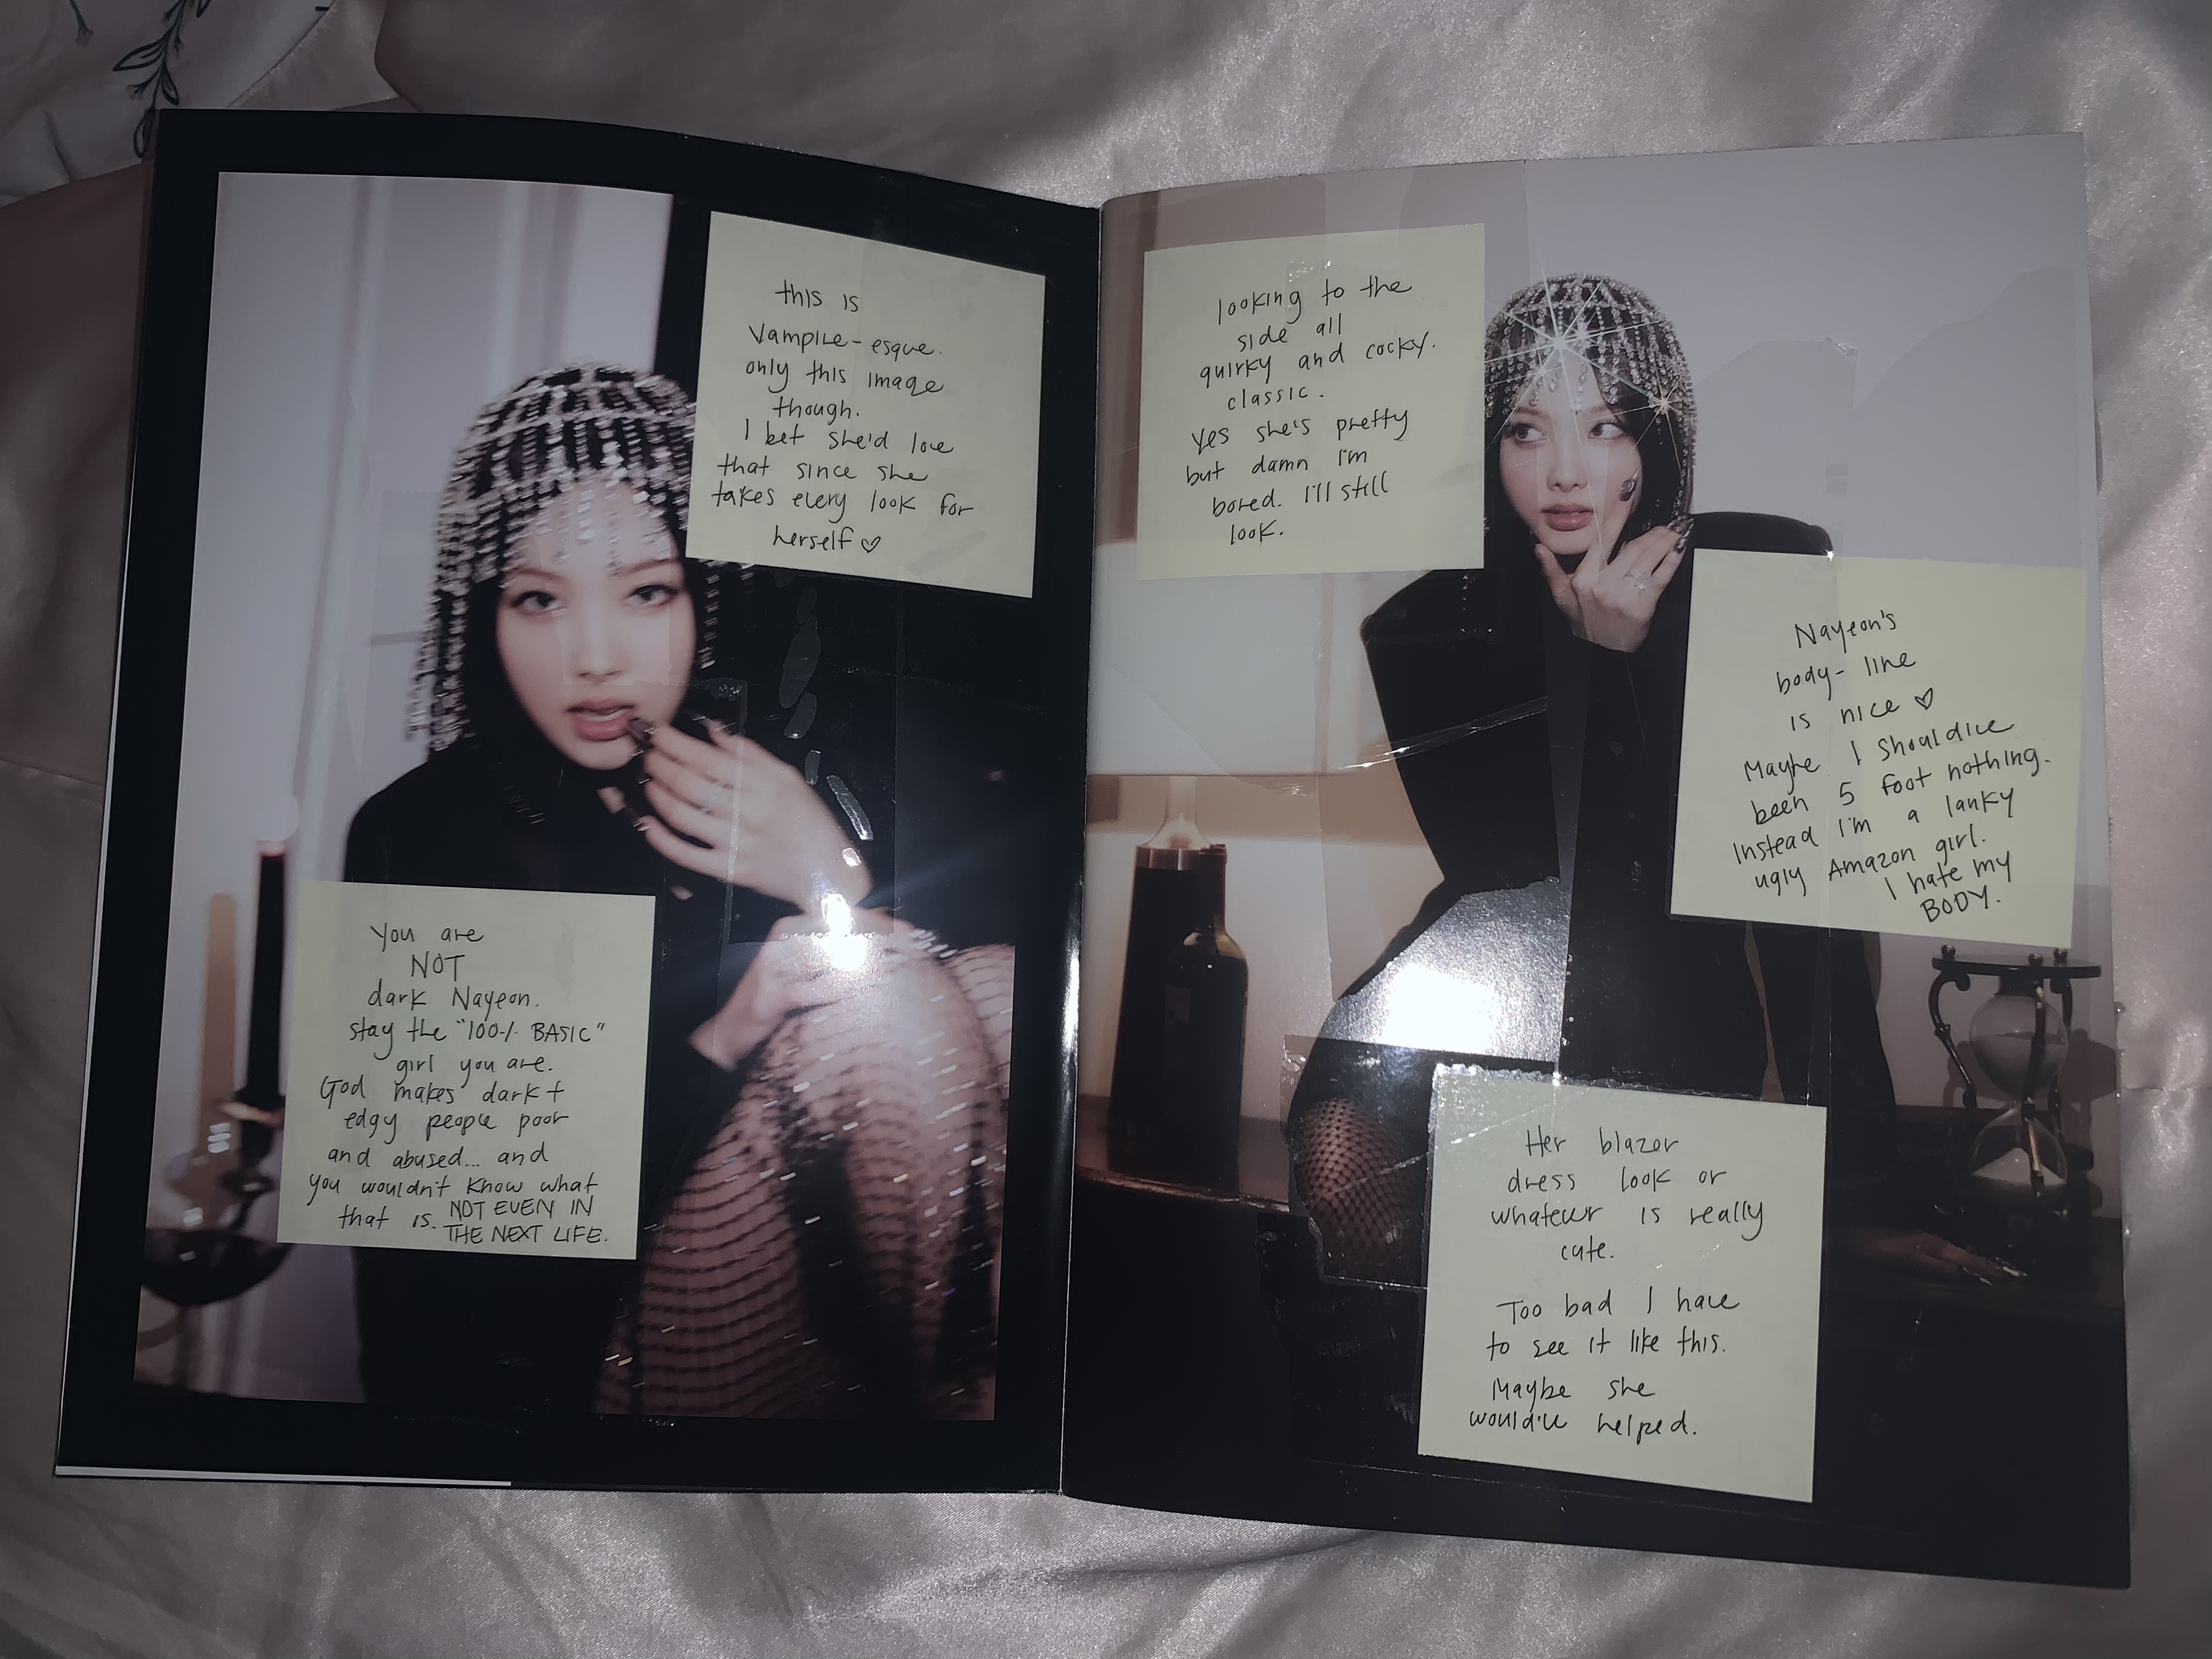 this is
Vampire-esque.
only this image
though.
I bet she'd love
that since she
takes every look for
herself ♡
You are
NOT
dark Nayeon.
stay the "100% BASIC"
girl you are.
God makes dark +
edgy people poor
and abused... and
you wouldn't know what
that is. NOT EVEN IN
THE NEXT LIFE.
looking to the
side all
quirky and cocky.
classic.
Yes she's pretty
but damn I'm
bored. I'll still
look.
Nayeon's
body-line
is nice ♡
Maybe I should've
been 5 foot nothing.
Instead I'm a lanky
ugly Amazon girl.
I hate my
BODY.
Her blazer
dress look or
whatever is really
cute.
Too bad I have
to see it like this.
Maybe she
would've helped.